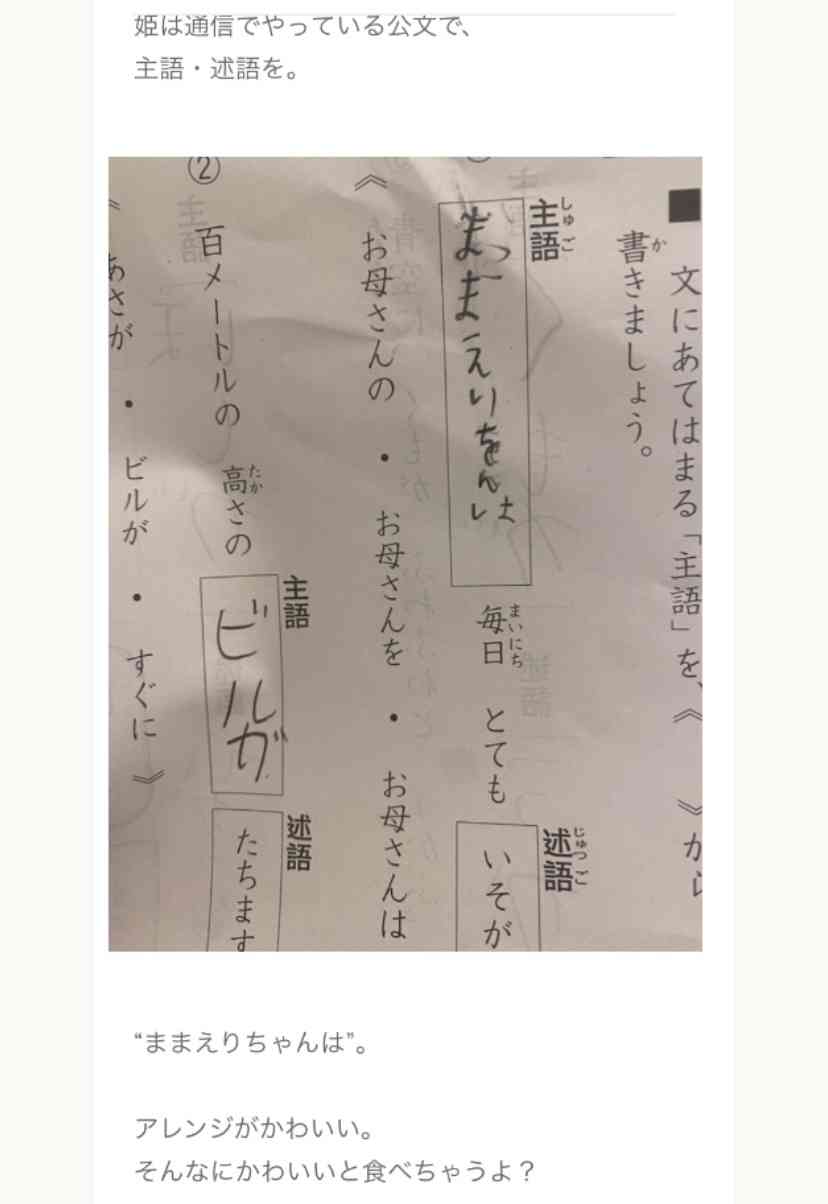 姫は通信でやっている公文で、
主語・述語を。
■ 文にあてはまる「主語」を、《 》から
書きましょう。
か
主語
しゅご
ままえりちゃんは
毎日 とても
まいにち
述語
じゅつご
いそが
《 お母さんの ・ お母さんを ・ お母さんは
② 百メートルの 高さの
たか
主語
ビルが
述語
たちます
《 あさが ・ ビルが ・ すぐに 》
“ままえりちゃんは”。
アレンジがかわいい。
そんなにかわいいと食べちゃうよ？